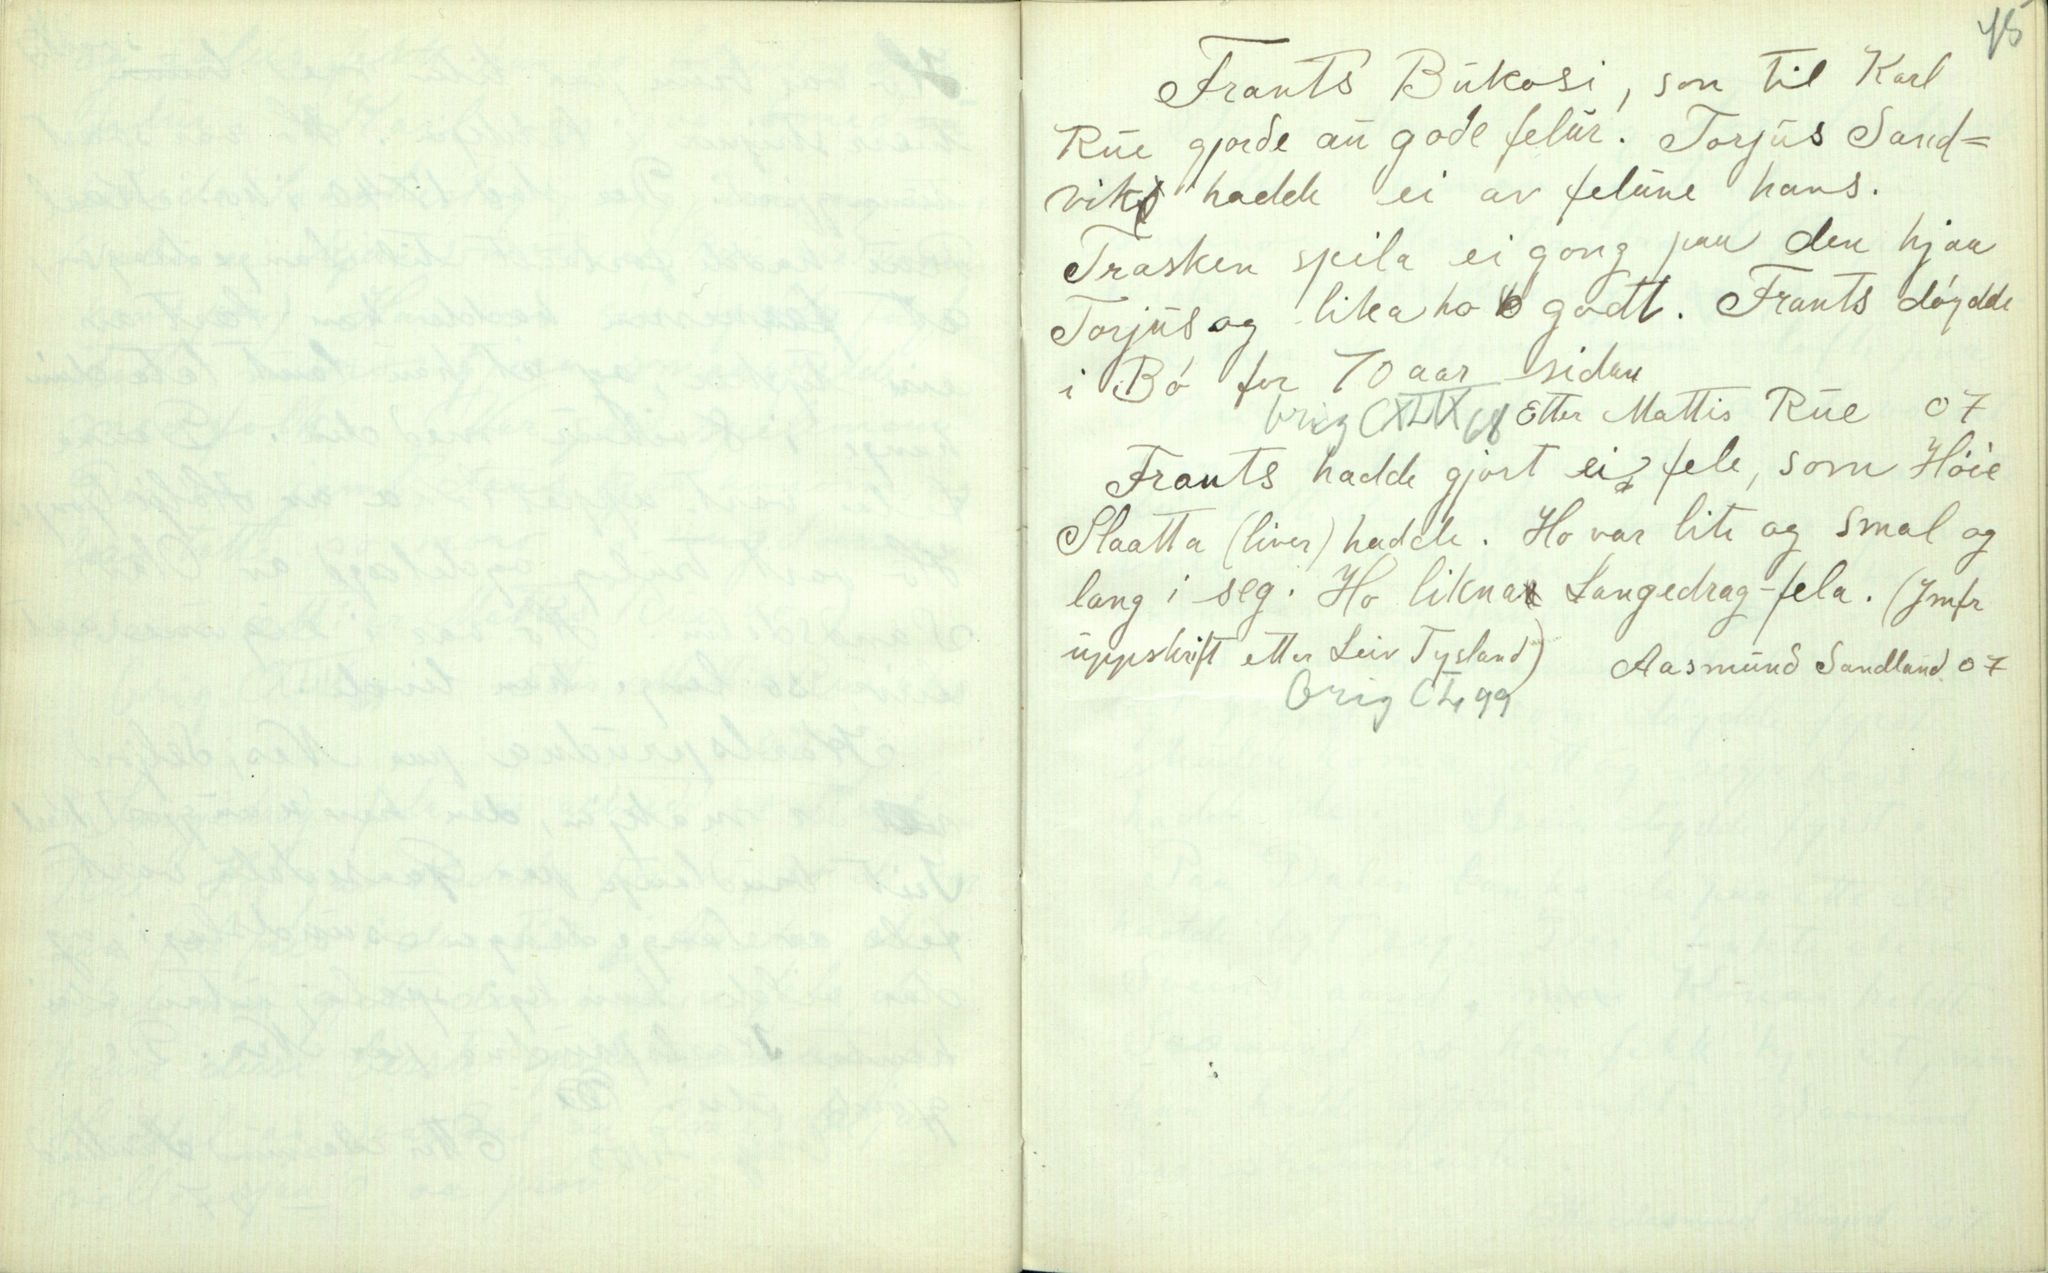 45
Frants Bukosi, son til Karl
Rue gjorde au gode felur. Torjus Sand=
vik hadde ei av felune hans.
Trasken spila ei gong paa den hjaa
Torjus og lika ho godt. Frants döydde
i Bö for 70 aar sidan
Orig CXLIX 68 Etter Mattis Rue 07
Frants hadde gjort ei fele, som Höie
Slaatta (liver) hadde. Ho var liti og smal og
lang i seg. Ho likna Langedrag-fela. (Jmfr
uppskrift etter Leiv Tysland) Aasmund Sandland 07
Orig CL, 99